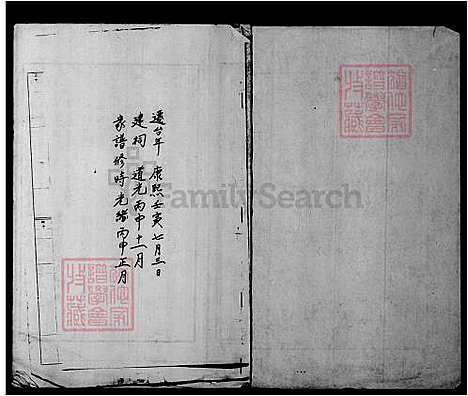 遷台年 康熙壬寅七月三日
建祠 道光丙申十一月
家譜修時光緒丙申正月
FamilySearch